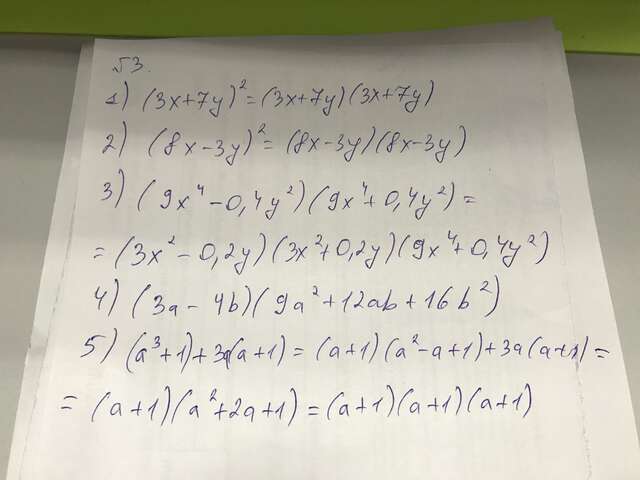 √3.
1) (3x+7y)²=(3x+7y)(3x+7y)
2) (8x-3y)²=(8x-3y)(8x-3y)
3) (9x⁴-0,4y²)(9x⁴+0,4y²)=
=(3x²-0,2y)(3x²+0,2y)(9x⁴+0,4y²)
4) (3a-4b)(9a²+12ab+16b²)
5) (a³+1)+3a(a+1)=(a+1)(a²-a+1)+3a(a+1)=
=(a+1)(a²+2a+1)=(a+1)(a+1)(a+1)